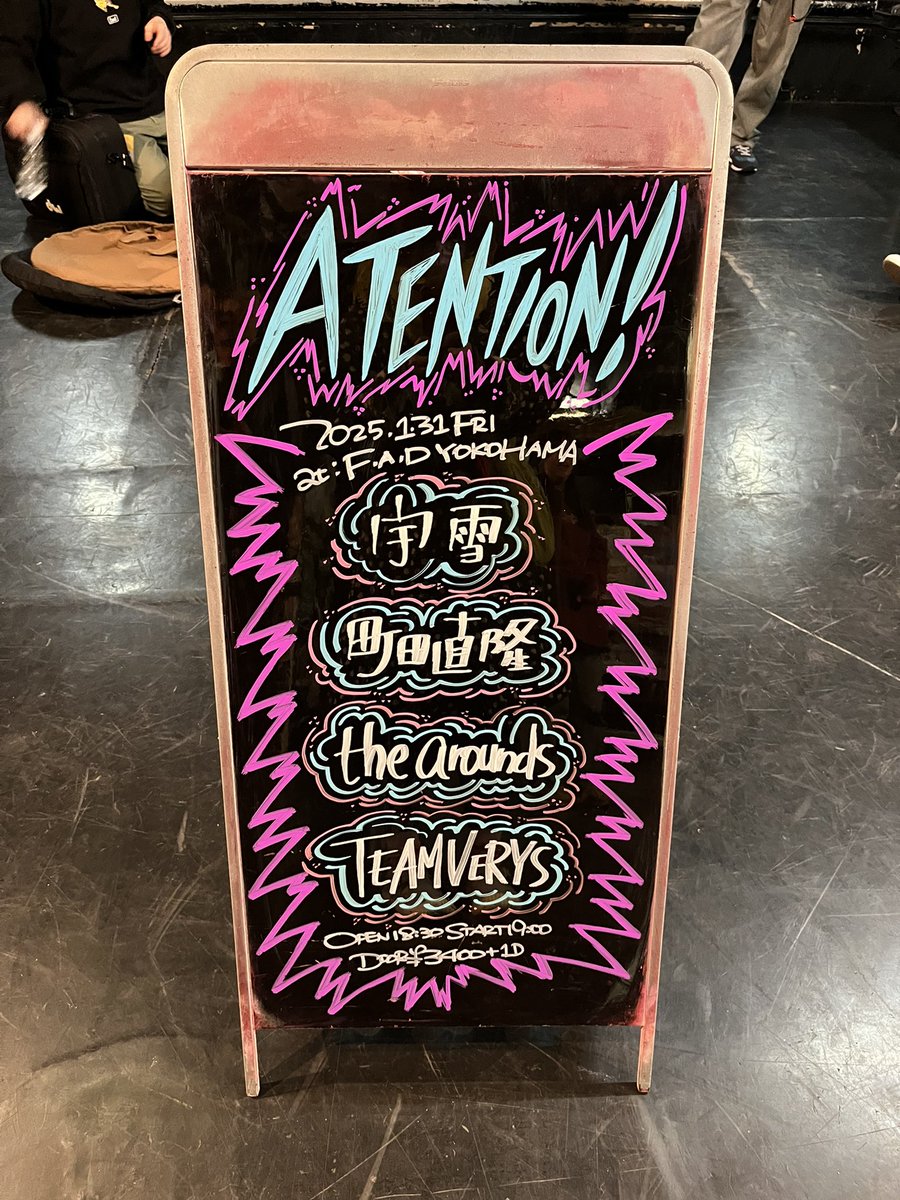 ATENTION!
2025.1.31 FRI
at: F.A.D YOKOHAMA
宇雪
町田直隆
the arounds
TEAMVERYS
OPEN 18:30 START 19:00
DOOR ¥3400+1D